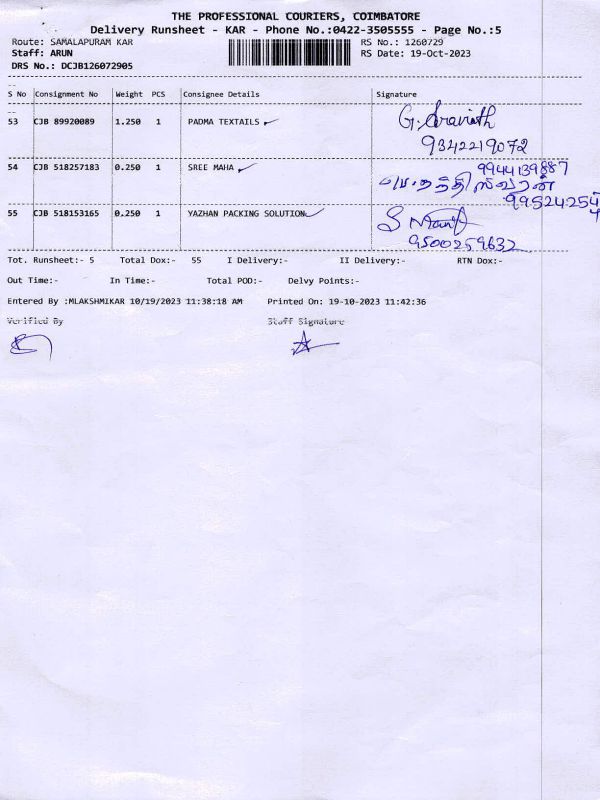 THE PROFESSIONAL COURIERS, COIMBATORE
Delivery Runsheet - KAR - Phone No.:0422-3505555 - Page No.:5
Route: SAMALAPURAM KAR RS No.: 1260729
Staff: ARUN RS Date: 19-Oct-2023
DRS No.: DCJB126072905
S No Consignment No Weight PCS Consignee Details Signature
53 CJB 89920089 1.250 1 PADMA TEXTAILS G. Aravinth
9342219072
54 CJB 518257183 0.250 1 SREE MAHA 9944139887
99524254
55 CJB 518153165 0.250 1 YAZHAN PACKING SOLUTION
9500259632
Tot. Runsheet:- 5 Total Dox:- 55 I Delivery:- II Delivery:- RTN Dox:-
Out Time:- In Time:- Total POD:- Delvy Points:-
Entered By :MLAKSHMIKAR 10/19/2023 11:38:18 AM Printed On: 19-10-2023 11:42:36
Verified By Staff Signature